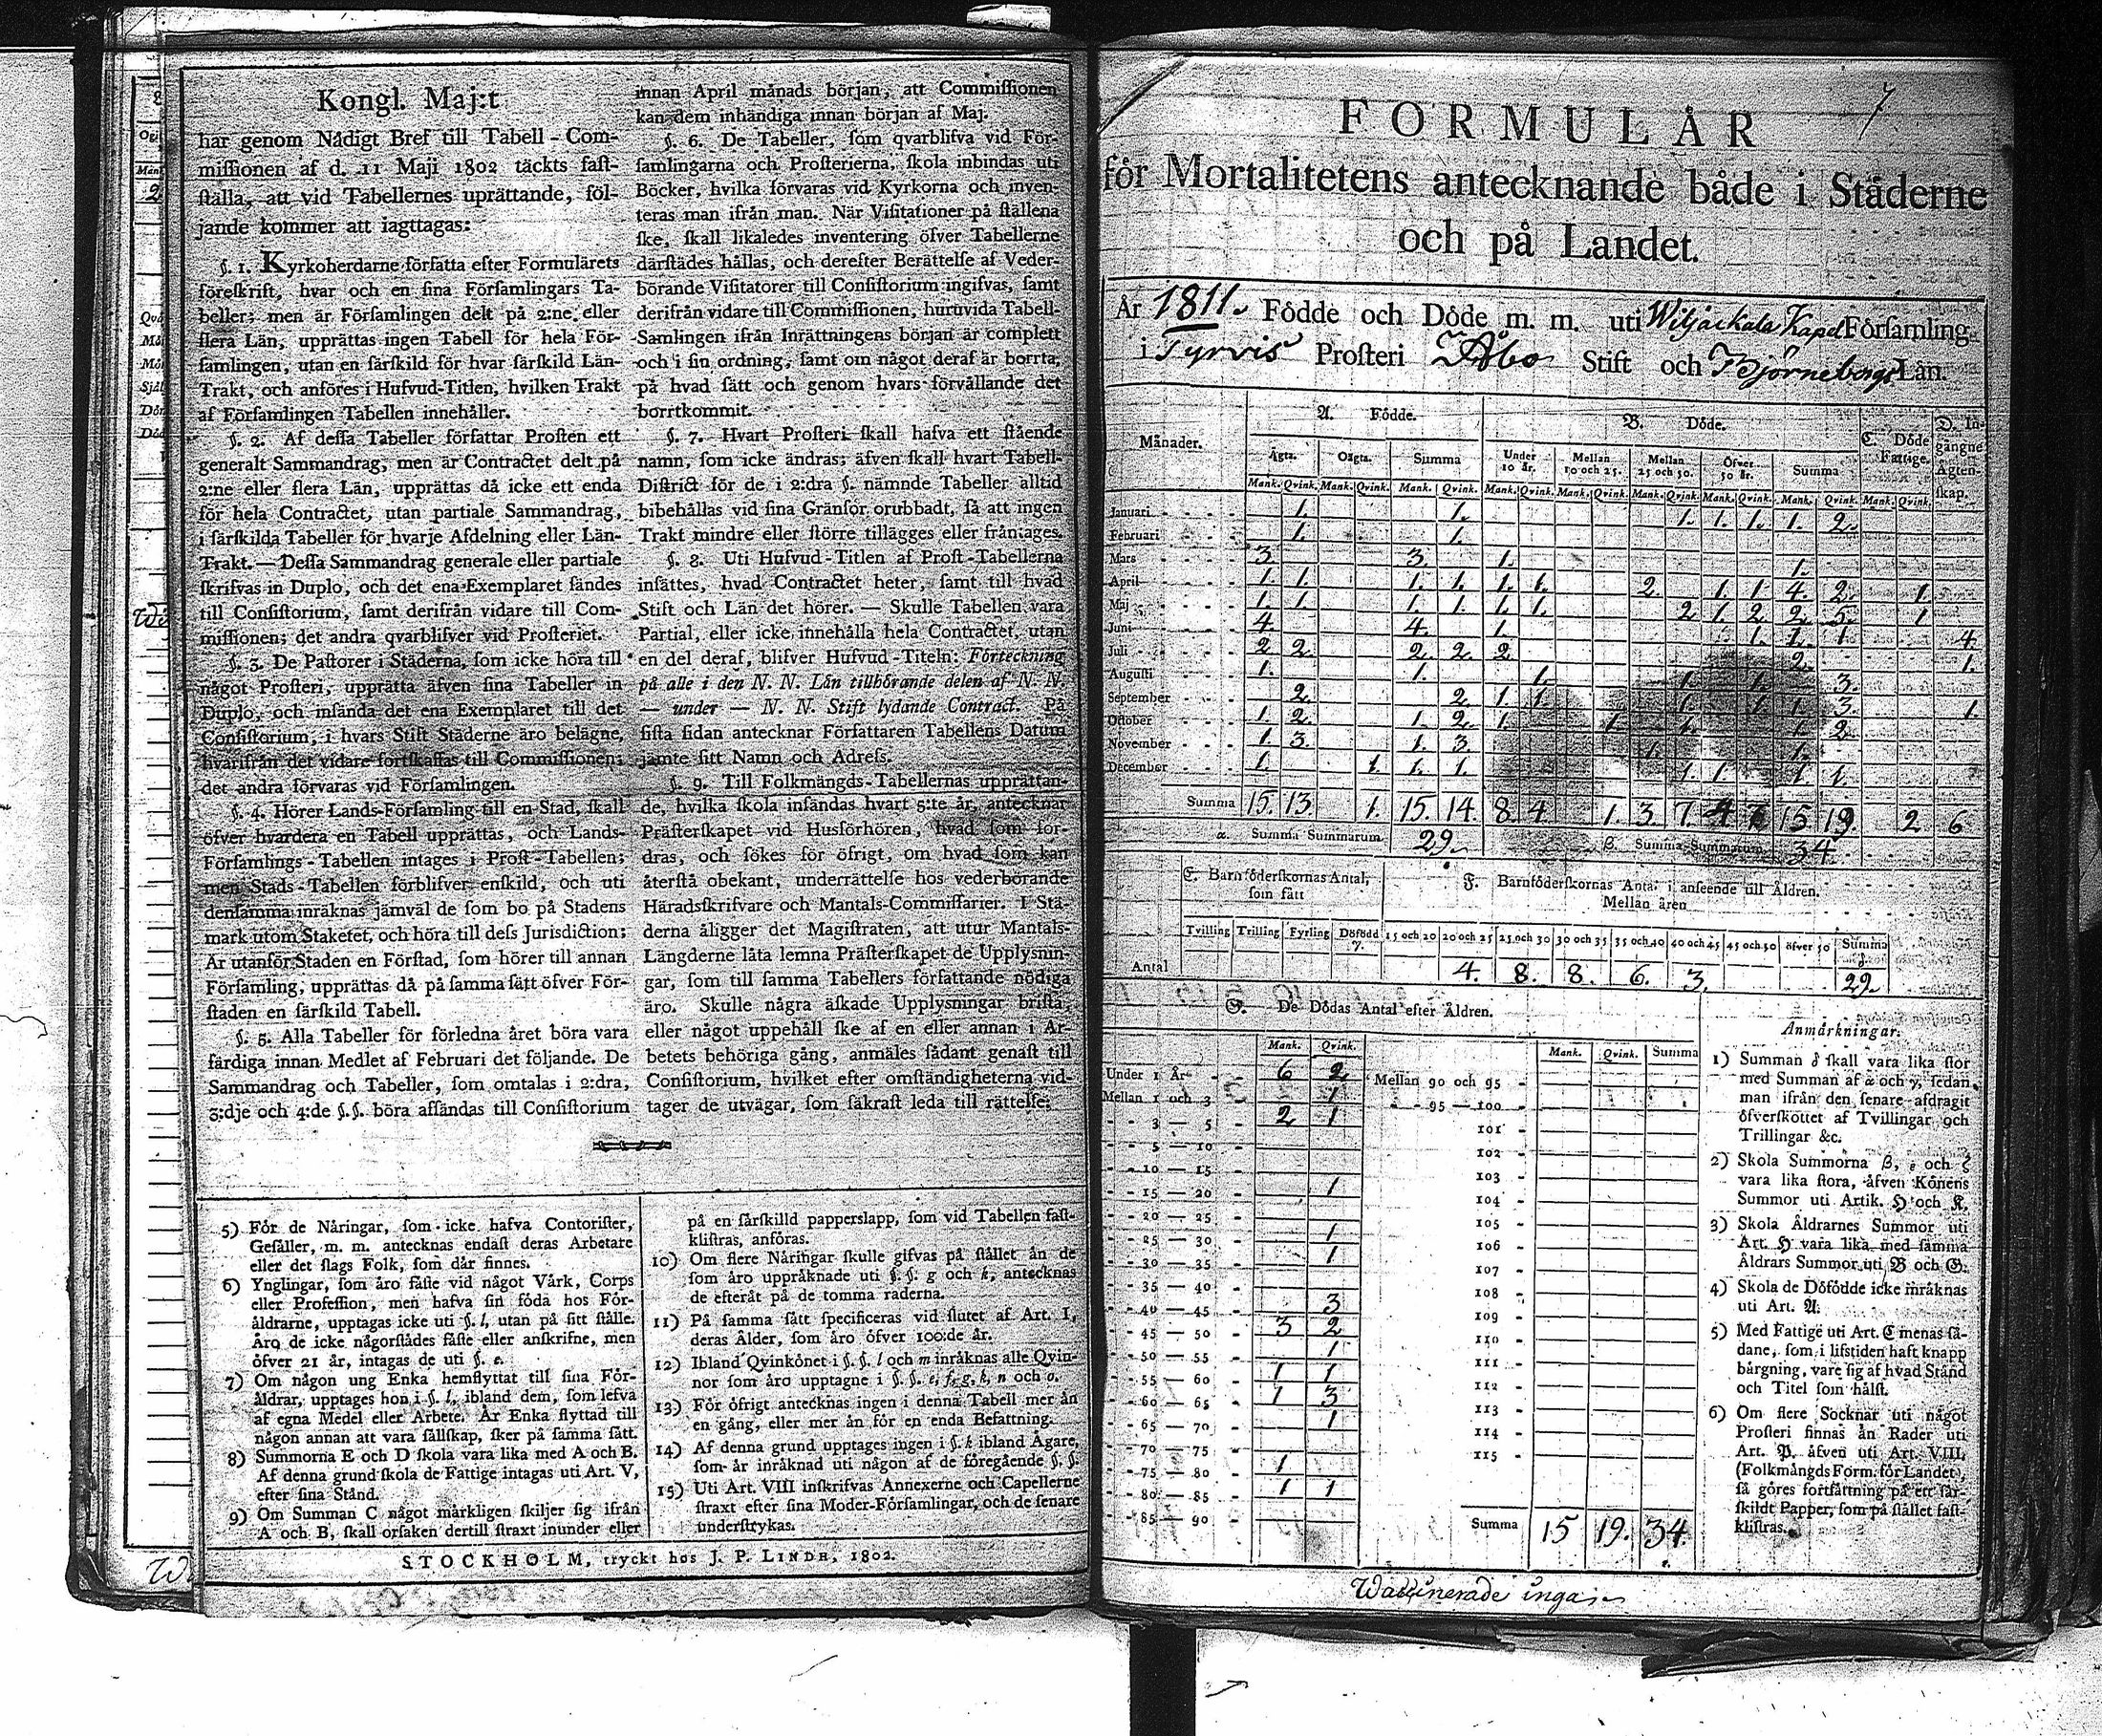 Kongl. Maj:t
har genom Nådigt Bref till Tabell-Com-
missionen af d. 11 Maji 1802 täckts fast-
ställa, att vid Tabellernes uprättande, föl-
jande kommer att iagttagas:
§. 1. Kyrkoherdarne författa efter Formulärets
föreskrift, hvar och en sina Församlingars Ta-
beller; men är Församlingen delt på 2:ne eller
flera Län, upprättas ingen Tabell för hela För-
samlingen, utan en särskild för hvar särskild Län-
Trakt, och anföres i Hufvud-Titlen, hvilken Trakt
af Församlingen Tabellen innehåller.
§. 2. Af dessa Tabeller författar Prosten ett
generalt Sammandrag, men är Contractet delt på
2:ne eller flera Län, upprättas då icke ett enda
för hela Contractet, utan partiale Sammandrag,
i särskilda Tabeller för hvarje Afdelning eller Län-
Trakt. — Dessa Sammandrag generale eller partiale
skrifvas in Duplo, och det ena Exemplaret sändes
till Consistorium, samt derifrån vidare till Com-
missionen; det andra qvarblifver vid Prosteriet.
§. 3. De Pastorer i Städerna, som icke höra till
något Prosteri, upprätta äfven sina Tabeller in
Duplo, och insända det ena Exemplaret till det
Consistorium, i hvars Stift Städerne äro belägne,
hvarifrån det vidare fortskaffas till Commissionen;
det andra förvaras vid Församlingen.
§. 4. Hörer Lands-Församling till en Stad, skall
öfver hvardera en Tabell upprättas, och Lands-
Församlings-Tabellen intages i Prost-Tabellen;
men Stads-Tabellen förblifver enskild, och uti
densamma inräknas jämväl de som bo på Stadens
mark utom Staketet, och höra till dess Jurisdiction;
Är utanför Staden en Förstad, som hörer till annan
Församling, upprättas då på samma sätt öfver För-
staden en särskild Tabell.
§. 5. Alla Tabeller för förledna året böra vara
färdiga innan Medlet af Februari det följande. De
Sammandrag och Tabeller, som omtalas i 2:dra,
3:dje och 4:de §.§. böra afsändas till Consistorium
innan April månads början, att Commissionen
kan dem inhändiga innan början af Maj.
§. 6. De Tabeller, som qvarblifva vid För-
samlingarna och Prosterierna, skola inbindas uti
Böcker, hvilka förvaras vid Kyrkorna och inven-
teras man ifrån man. När Visitationer på ställena
ske, skall likaledes inventering öfver Tabellerne
därstädes hållas, och derefter Berättelse af Veder-
börande Visitatorer till Consistorium ingifvas, samt
derifrån vidare till Commissionen, huruvida Tabell-
Samlingen ifrån Inrättningens början är complett
och i sin ordning, samt om något deraf är borrta,
på hvad sätt och genom hvars förvållande det
borrtkommit.
§. 7. Hvart Prosteri skall hafva ett stående
namn, som icke ändras; äfven skall hvart Tabell-
District för de i 2:dra §. nämnde Tabeller alltid
bibehållas vid sina Gränsor orubbadt, så att ingen
Trakt mindre eller större tillägges eller fråntages.
§. 8. Uti Hufvud-Titlen af Prost-Tabellerna
insättes, hvad Contractet heter, samt till hvad
Stift och Län det hörer. — Skulle Tabellen vara
Partial, eller icke innehålla hela Contractet, utan
en del deraf, blifver Hufvud-Titeln: Förteckning
på alle i den N. N. Län tillhörande delen af N. N.
— under — N. N. Stift lydande Contract. På
sista sidan antecknar Författaren Tabellens Datum
jämte sitt Namn och Adress.
§. 9. Till Folkmängds-Tabellernas upprättan-
de, hvilka skola insändas hvart 5:te år, antecknar
Prästerskapet vid Husförhören, hvad som for-
dras, och sökes för öfrigt, om hvad som kan
återstå obekant, underrättelse hos vederbörande
Häradsskrifvare och Mantals-Commissarier. I Stä-
derna åligger det Magistraten, att utur Mantals-
Längderne låta lemna Prästerskapet de Upplysnin-
gar, som till samma Tabellers författande nödiga
äro. Skulle några äskade Upplysningar brista,
eller något uppehåll ske af en eller annan i Ar-
betets behöriga gång, anmäles sådant genast till
Consistorium, hvilket efter omständigheterna vid-
tager de utvägar, som säkrast leda till rättelse.
5) För de Näringar, som icke hafva Contorister,
Gesäller, m. m. antecknas endast deras Arbetare
eller det slags Folk, som där finnes.
6) Ynglingar, som äro fäste vid något Värk, Corps
eller Profession, men hafva sin föda hos För-
äldrarne, upptagas icke uti §. l, utan på sitt ställe.
Äro de icke någorstädes fäste eller anskrifne, men
öfver 21 år, intagas de uti §. e.
7) Om någon ung Enka hemflyttat till sina För-
äldrar, upptages hon i §. l, ibland dem, som lefva
af egna Medel eller Arbete. Är Enka flyttad till
någon annan att vara sällskap, sker på samma sätt.
8) Summorna E och D skola vara lika med A och B.
Af denna grund skola de Fattige intagas uti Art. V,
efter sina Stånd.
9) Om Summan C något märkligen skiljer sig ifrån
A och B, skall orsaken dertill straxt inunder eller
på en särskilld papperslapp, som vid Tabellen fast-
klistras, anföras.
10) Om flere Näringar skulle gifvas på stället än de
som äro uppräknade uti §. §. g och k, antecknas
de efteråt på de tomma raderna.
11) På samma sätt specificeras vid slutet af Art. I,
deras Ålder, som äro öfver 100:de år.
12) Ibland Qvinkönet i §. §. l och m inräknas alle Qvin-
nor som äro upptagne i §. §. e, f, g, k, n och o.
13) För öfrigt antecknas ingen i denna Tabell mer än
en gång, eller mer än för en enda Befattning.
14) Af denna grund upptages ingen i §. k ibland Ägare,
som är inräknad uti någon af de föregående §. §.
15) Uti Art. VIII inskrifvas Annexerne och Capellerne
straxt efter sina Moder-Församlingar, och de senare
understrykas.
STOCKHOLM, tryckt hos J. P. LINDH, 1802.
7
FORMULÄR
för Mortalitetens antecknande både i Städerne
och på Landet.
År 1811. Födde och Döde m. m. uti Wiljackala Kapel Församling
i Tyrvis Prosteri Åbo Stift och Björneborgs Län.
Månader. A. Födde. B. Döde. C. Döde Fattige. D. Ingångne Ägtenskap.
Ägta. Oägta. Summa Under 10 år. Mellan 10 och 25. Mellan 25 och 50. Öfver 50 år. Summa
Mank. Qvink. Mank. Qvink. Mank. Qvink. Mank. Qvink. Mank. Qvink. Mank. Qvink. Mank. Qvink. Mank. Qvink. Mank. Qvink.
Januari 1. 1. 1. 1. 1. 1. 2.
Februari 1. 1.
Mars 3. 3. 1. 1.
April 1. 1. 1. 1. 1. 1. 2. 1. 1. 4. 2. 1.
Maj 1. 1. 1. 1. 1. 1. 2 1. 2 2. 5. 1
Juni 4. 4. 1. 1. 1. 1 4.
Juli 2 2. 2. 2. 2 2. 1.
Augusti 1. 1. 1. 1. 1. 3.
September 2. 2. 1. 1. 1. 1. 1. 3. 1.
October 1. 2. 1. 2. 1. 1. 1. 1. 2.
November 1. 3. 1. 3. 1. 1.
December 1. 1. 1. 1. 1. 1. 1. 1.
Summa 15. 13. 1. 15. 14. 8. 4. 1. 3. 7. 4 7 15 19. 2 6
α. Summa Summarum 29. β. Summa Summarum 34.
E. Barnföderskornas Antal, som fått
F. Barnföderskornas Antal i anseende till Åldren.
Mellan åren
Tvilling Trilling Fyrling Dödfödd γ. 15 och 20 20 och 25 25 och 30 30 och 35 35 och 40 40 och 45 45 och 50 öfver 50 Summa δ.
Antal 4. 8. 8. 6. 3. 29.
G. De Dödas Antal efter Åldren.
Mank. Qvink. Mank. Qvink. Summa
Under 1 År 6 2 Mellan 90 och 95
Mellan 1 och 3 1 95 — 100
3 — 5 2 1 101
5 — 10 102
10 — 15 103
15 — 20 1 104
20 — 25 105
25 — 30 1 106
30 — 35 1 107
35 — 40 108
40 — 45 3 109
45 — 50 3 2 110
50 — 55 1 111
55 — 60 1 1 112
60 — 65 1 3 113
65 — 70 1 114
70 — 75 115
75 — 80 1
80 — 85 1 1
85 — 90 Summa 15 19. 34.
Anmärkningar.
1) Summan δ skall vara lika stor
med Summan af α och γ, sedan
man ifrån den senare afdragit
öfverskottet af Tvillingar och
Trillingar &c.
2) Skola Summorna β, ε och ζ
vara lika stora, äfven Könens
Summor uti Artik. H och K.
3) Skola Åldrarnes Summor uti
Art. H vara lika med samma
Åldrars Summor uti B och G.
4) Skola de Dödfödde icke inräknas
uti Art. A.
5) Med Fattige uti Art. C menas så-
dane, som i lifstiden haft knapp
bärgning, vare sig af hvad Stånd
och Titel som hälst.
6) Om flere Socknar uti något
Prosteri finnas än Rader uti
Art. P. äfven uti Art. VIII,
(Folkmängds Form. för Landet),
så göres fortsättning på ett sär-
skildt Papper, som på stället fast-
klistras.
Waccinerade inga.